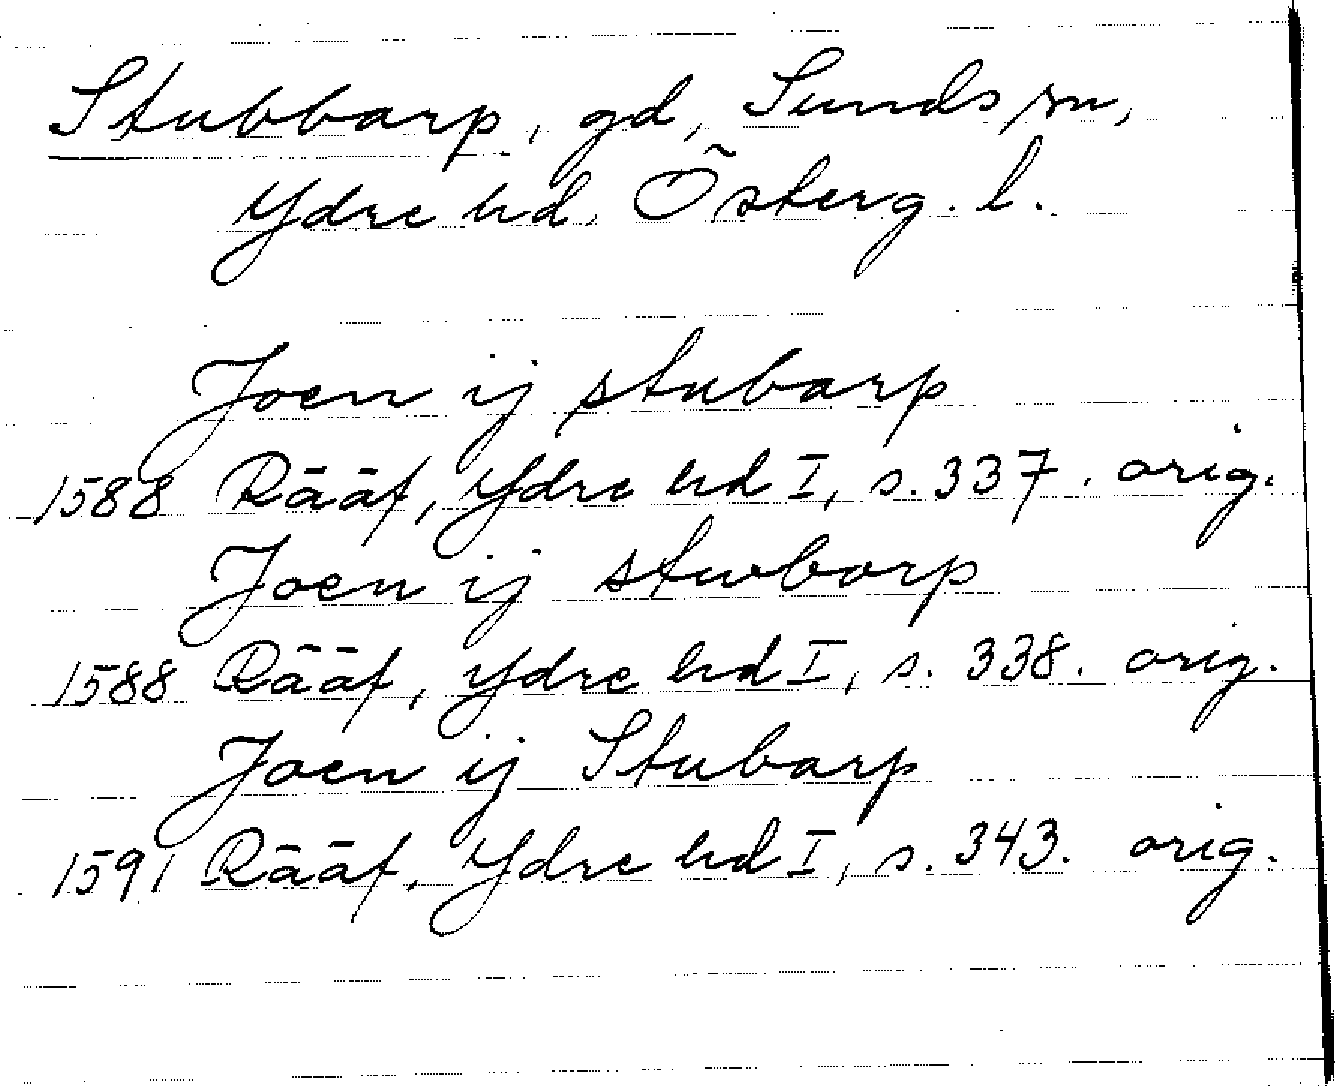 Stubbarp, gd, Sunds sn,
Ydre hd, Österg. l.
Joen ij stubarp
1588 Rääf, Ydre hd I, s. 337. orig.
Joen ij stwbarp
1588 Rääf, Ydre hd I, s. 338. orig.
Joen ij Stubarp
1591 Rääf, Ydre hd I, s. 343. orig.